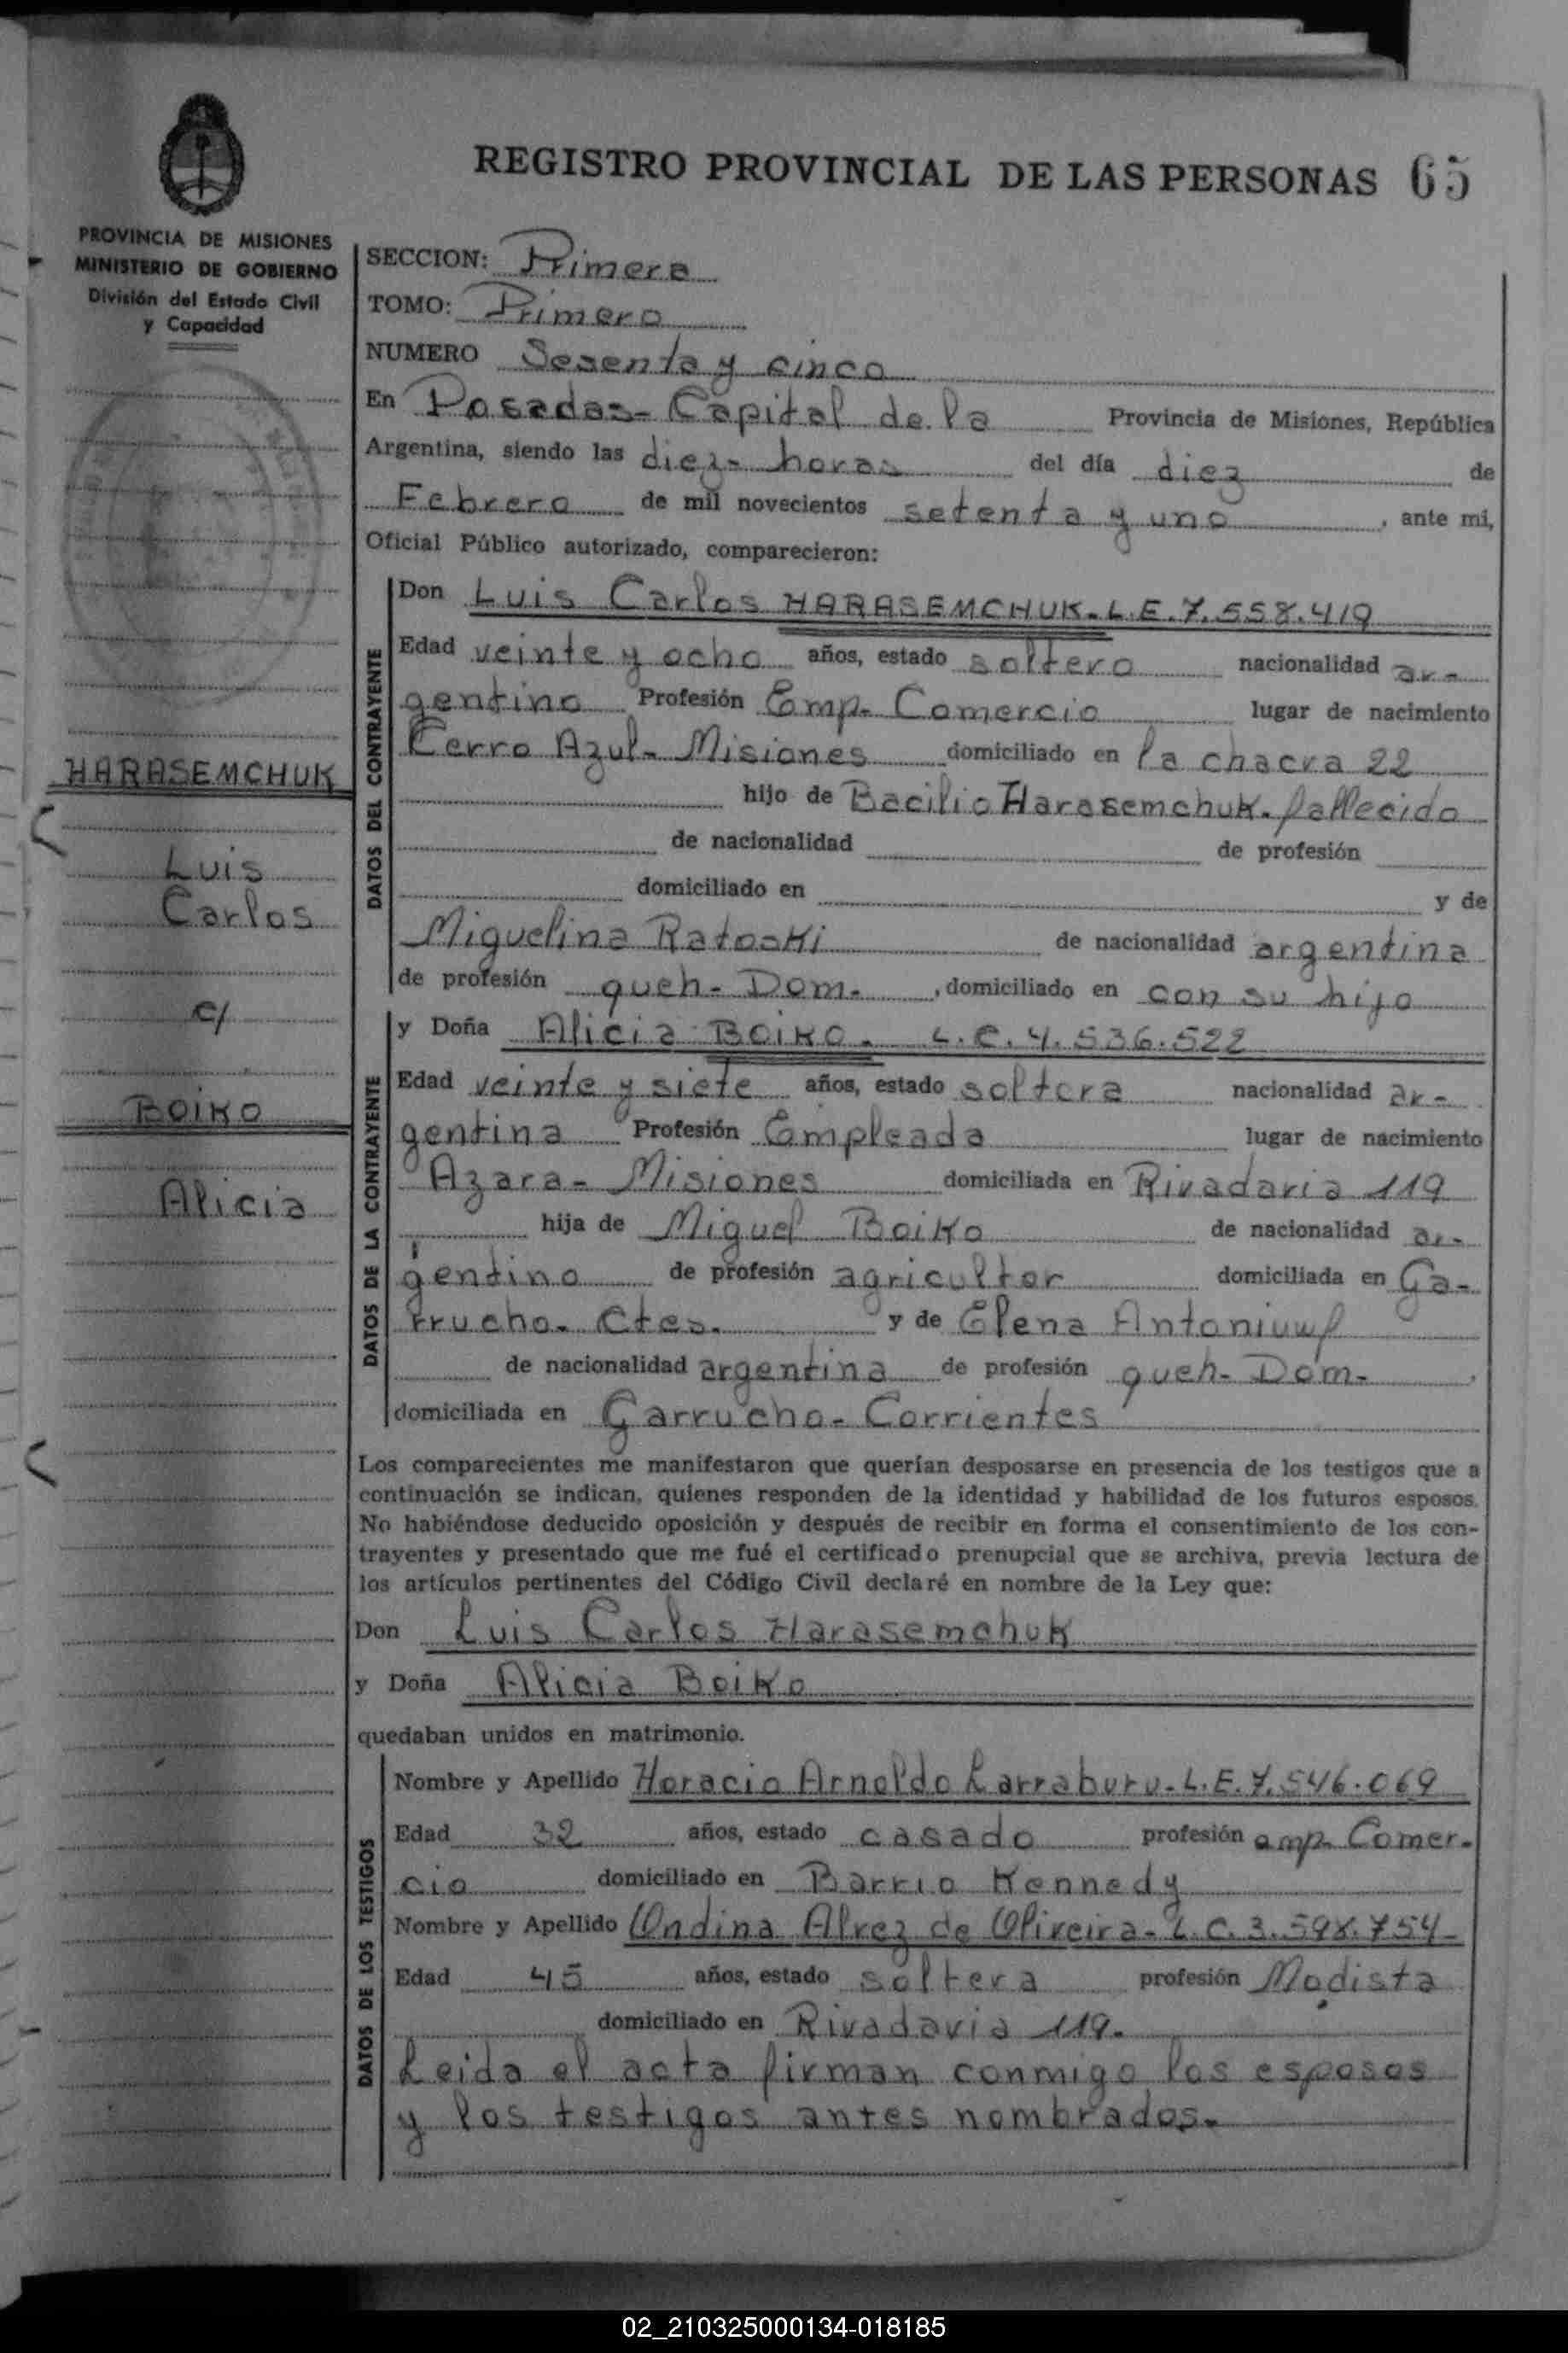 REGISTRO PROVINCIAL DE LAS PERSONAS 65
PROVINCIA DE MISIONES
MINISTERIO DE GOBIERNO
División del Estado Civil
y Capacidad
HARASEMCHUK
Luis
Carlos
c/
BOIKO
Alicia
SECCION: Primera
TOMO: Primero
NUMERO Sesenta y cinco
En Posadas- Capital de la Provincia de Misiones, República
Argentina, siendo las diez- horas del día diez de
Febrero de mil novecientos setenta y uno, ante mi,
Oficial Público autorizado, comparecieron:
DATOS DEL CONTRAYENTE
Don Luis Carlos HARASEMCHUK- L.E. 7.558.419
Edad veinte y ocho años, estado soltero nacionalidad ar-
gentino Profesión Emp- Comercio lugar de nacimiento
Cerro Azul- Misiones domiciliado en la chacra 22
hijo de Bacilio Harasemchuk- fallecido
de nacionalidad de profesión
domiciliado en y de
Miguelina Ratoski de nacionalidad argentina
de profesión queh- Dom-, domiciliado en con su hijo
DATOS DE LA CONTRAYENTE
y Doña Alicia BOIKO- L.C. 4.536.522
Edad veinte y siete años, estado soltera nacionalidad ar-
gentina Profesión Empleada lugar de nacimiento
Azara- Misiones domiciliada en Rivadavia 119
hija de Miguel Boiko de nacionalidad ar-
gentino de profesión agricultor domiciliada en Ga-
rrucho- Ctes. y de Elena Antoniuuf
de nacionalidad argentina de profesión queh- Dom-,
domiciliada en Garrucho- Corrientes
Los comparecientes me manifestaron que querían desposarse en presencia de los testigos que a
continuación se indican, quienes responden de la identidad y habilidad de los futuros esposos.
No habiéndose deducido oposición y después de recibir en forma el consentimiento de los con-
trayentes y presentado que me fué el certificado prenupcial que se archiva, previa lectura de
los artículos pertinentes del Código Civil declaré en nombre de la Ley que:
Don Luis Carlos Harasemchuk
y Doña Alicia Boiko
quedaban unidos en matrimonio.
DATOS DE LOS TESTIGOS
Nombre y Apellido Horacio Arnoldo Larraburu- L.E. 7.546.069
Edad 32 años, estado casado profesión emp- Comer-
cio domiciliado en Barrio Kennedy
Nombre y Apellido Ondina Alvez de Oliveira- L.C. 3.598.754
Edad 45 años, estado soltera profesión Modista
domiciliado en Rivadavia 119.
Leida el acta firman conmigo los esposos
y los testigos antes nombrados.
02_210325000134-018185